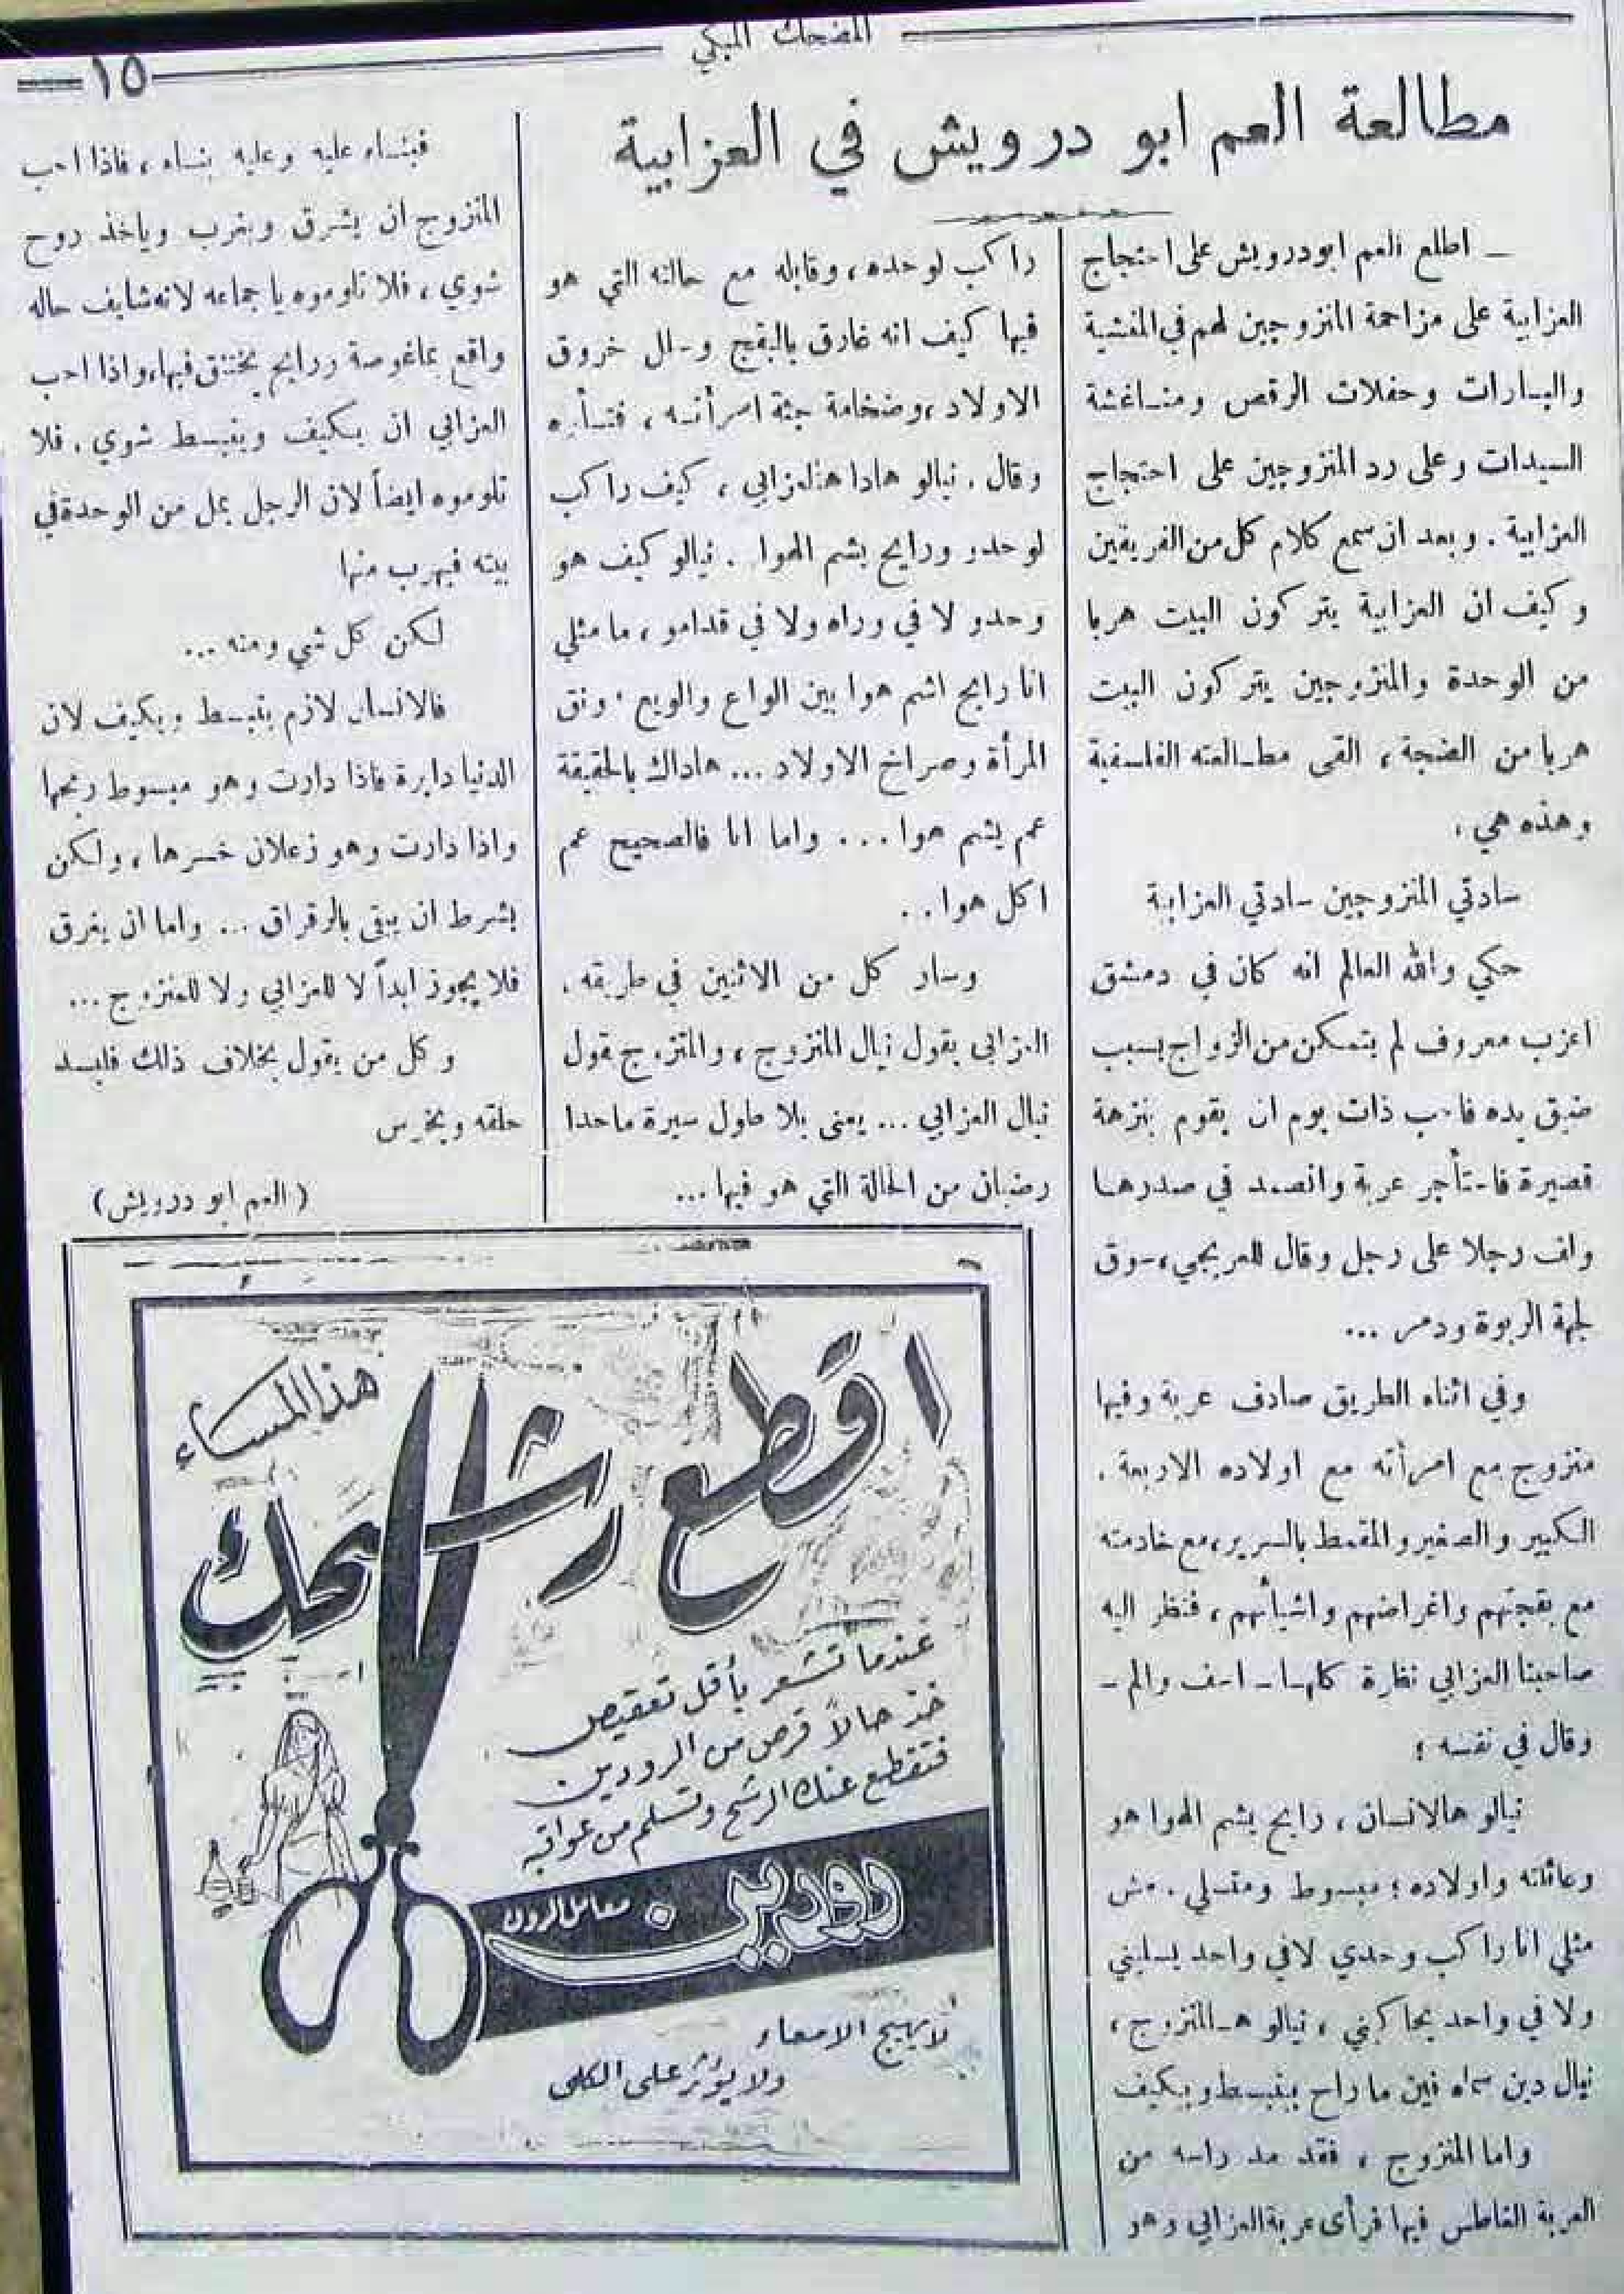 المضحك المبكي
١٥
مطالعة العم ابو درويش في العزابية
ـ اطلع العم ابو درويش على احتجاج
العزابية على مزاحمة المتزوجين لهم في المنشية
والبارات وحفلات الرقص ومناغشة
السيدات وعلى رد المتزوجين على احتجاج
العزابية . وبعد ان سمع كلام كل من الفريقين
وكيف ان العزابية يتركون البيت هربا
من الوحدة والمتزوجين يتركون البيت
هربا من الضجة ، القى مطالعته الفلسفية
وهذه هي :
سادتي المتزوجين سادتي العزابية
حكي والله العالم انه كان في دمشق
اعزب معروف لم يتمكن من الزواج بسبب
ضيق يده فاحب ذات يوم ان يقوم بنزهة
قصيرة فاستأجر عربة وانصمد في صدرها
ولف رجلا على رجل وقال للعربجي ، سوق
لجهة الربوة ودمر ...
وفي اثناء الطريق صادف عربة وفيها
متزوج مع امرأته مع اولاده الاربعة .
الكبير والصغير والمقمط بالسرير ، مع خادمته
مع بقجتهم واغراضهم واشيائهم ، فنظر اليه
صاحبنا العزابي نظرة كلها ـ اسف والم ـ
وقال في نفسه :
نيالو هالانسان ، رايح يشم الهوا هو
وعائلته واولاده ؛ مبسوط ومتسلي . مش
مثلي انا راكب وحدي لا في واحد يسليني
ولا في واحد يحاكيني ، نيالو هـالمتزوج ،
نيال دين سماه فين ما راح بينبسط وبيكيف
واما المتزوج ، فقد مد راسه من
العربة الغاطس فيها فرأى عربة العزابي وهو
راكب لوحده ، وقابله مع حالته التي هو
فيها كيف انه غارق بالبقج وسلل خروق
الاولاد ، وضخامة جثة امرأته ، فتأوه
وقال . نيالو هادا هالعزابي ، كيف راكب
لوحدو ورايح يشم الهوا . نيالو كيف هو
وحدو لا في وراه ولا في قدامو ، ما مثلي
انا رايح اشم هوا بين الواع والويع ، ونق
المرأة وصراخ الاولاد ... هاداك بالحقيقة
عم يشم هوا ... واما انا فالصحيح عم
اكل هوا ..
وسار كل من الاثنين في طريقه .
العزابي يقول نيال المتزوج ، والمتزوج يقول
نيال العزابي ... يعني بلا طول سيرة ما حدا
رضيان من الحالة التي هو فيها ...
فبناء عليه وعليه بناء ، فاذا احب
المتزوج ان يشرق ويغرب وياخذ روح
شوي ، فلا تلوموه يا جماعه لانه شايف حاله
واقع بماغوصة ورايح يختنق فيها ، واذا احب
العزابي ان يكيف وينبسط شوي . فلا
تلوموه ايضاً لان الرجل يمل من الوحدة في
بيته فيهرب منها
لكن كل شي ومنه ...
فالانسان لازم ينبسط ويكيف لان
الدنيا دايرة فاذا دارت وهو مبسوط ربحها
واذا دارت وهو زعلان خسرها ، ولكن
بشرط ان يبقى بالرقراق ... واما ان يغرق
فلا يجوز ابداً لا للعزابي ولا للمتزوج ...
وكل من يقول بخلاف ذلك فليسد
حلقه ويخرس
(العم ابو درويش)
اقطع رشحك
هذا المساء
عندما تشعر بأقل تعقيص
خذ حالاً قرص من الرودين
فتقطع عنك الرشح وتسلم من عواقبه
رودين . معامل الرون
لا يهيج الامعاء
ولا يؤثر على الكلى